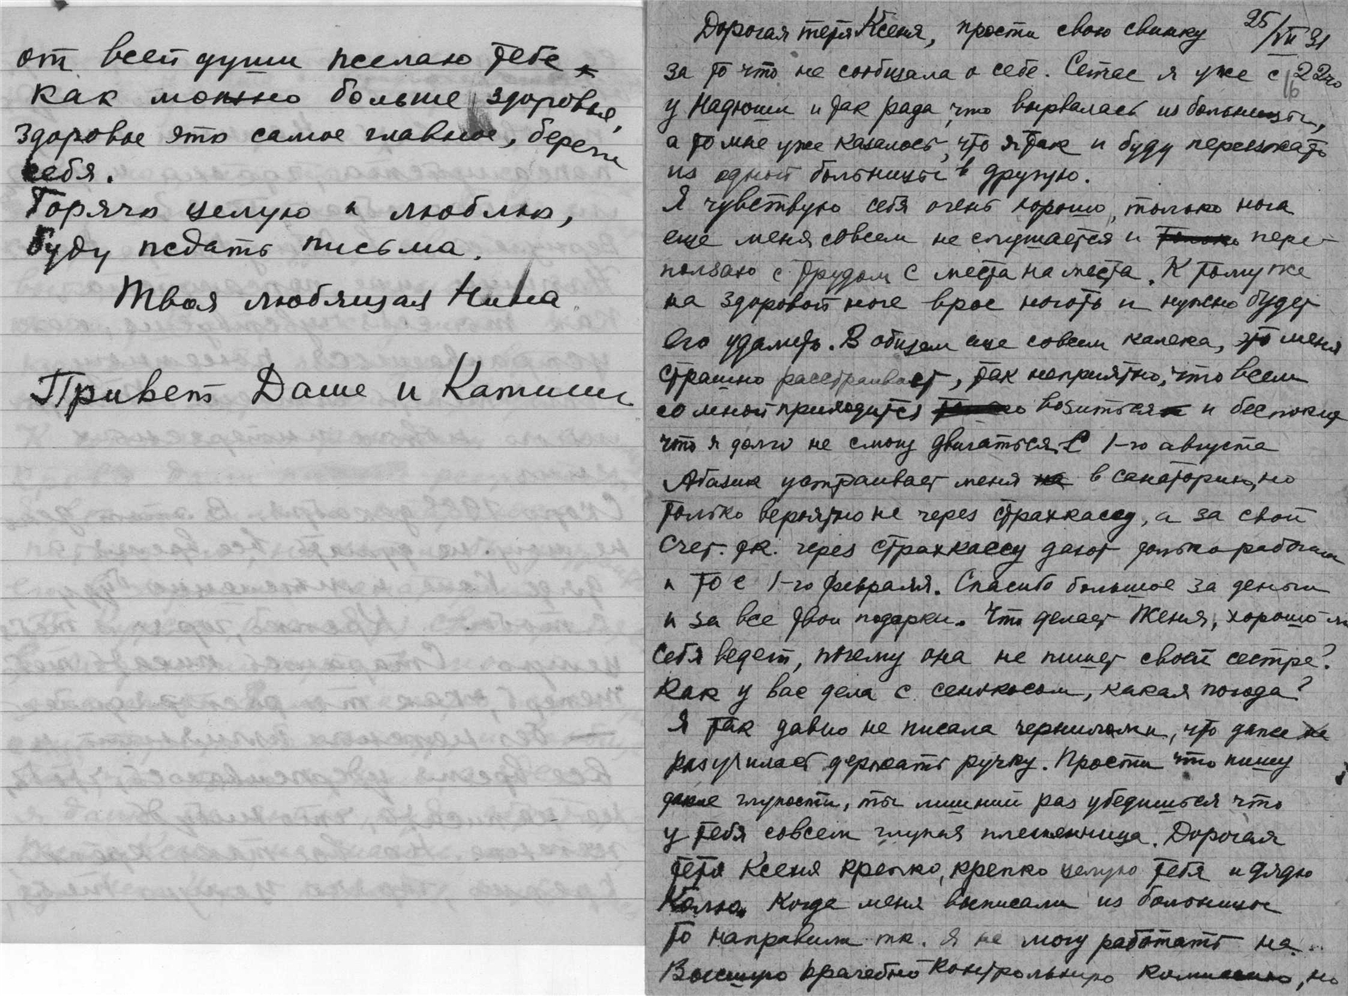 от всей души желаю тебе
как можно больше здоровья,
здоровье это самое главное, береги
себя.
Горячо целую и люблю,
буду ждать письма.
Твоя любящая Нина
Привет Даше и Катюше
Дорогая тетя Ксеня, прости свою свинку 25/VII 31
за то что не сообщала о себе. Сейчас я уже с 22го
у Надюши и так рада, что вырвалась из больницы,
а то мне уже казалось, что я так и буду переезжать
из одной больницы в другую.
Я чувствую себя очень хорошо, только нога
еще меня совсем не слушается и пере-
ползаю с трудом с места на места. К тому же
на здоровой ноге врос ноготь и нужно будет
его удалить. В общем еще совсем калека, это меня
страшно расстраивает, так неприятно, что всем
со мной приходится возиться и беспокоит
что я долго не смогу двигаться. С 1-го августа
устраивает меня в санаторию, но
только вероятно не через страхкассу, а за свой
счет. т.к. через страхкассу дают только рабочим
и то с 1-го февраля. Спасибо большое за деньги
и за все твои подарки. Что делает Женя, хорошо ли
себя ведет, почему она не пишет своей сестре?
Как у вас дела с сенокосом, какая погода?
Я так давно не писала чернилами, что даже
разучилась держать ручку. Прости что пишу
такие глупости, ты лишний раз убедишься что
у тебя совсем глупая племянница. Дорогая
тетя Ксеня крепко, крепко целую тебя и дядю
Колю. Когда меня выписали из больницы
то направили т.к. я не могу работать на
Высшую врачебно контрольную комиссию, но